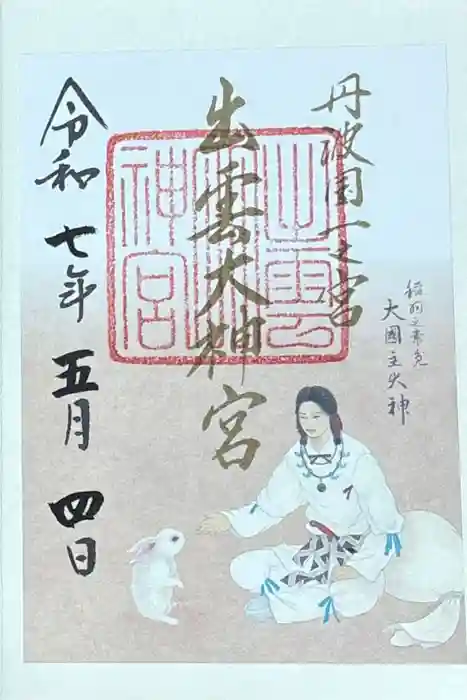 丹波國一之宮
出雲大神宮
稲羽之素兎
大國主大神
令和七年五月四日
出雲大神宮